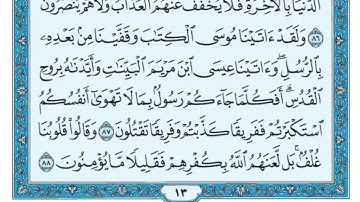 الدُّنْيَا بِالْآخِرَةِ فَلَا يُخَفَّفُ عَنْهُمُ الْعَذَابُ وَلَا هُمْ يُنْصَرُونَ
٨٦ وَلَقَدْ ءَاتَيْنَا مُوسَى الْكِتَابَ وَقَفَّيْنَا مِنْ بَعْدِهِ
بِالرُّسُلِ وَءَاتَيْنَا عِيسَى ابْنَ مَرْيَمَ الْبَيِّنَاتِ وَأَيَّدْنَاهُ بِرُوحِ
الْقُدُسِ أَفَكُلَّمَا جَاءَكُمْ رَسُولٌ بِمَا لَا تَهْوَى أَنْفُسُكُمُ
اسْتَكْبَرْتُمْ فَفَرِيقًا كَذَّبْتُمْ وَفَرِيقًا تَقْتُلُونَ ٨٧ وَقَالُوا قُلُوبُنَا
غُلْفٌ بَلْ لَعَنَهُمُ اللَّهُ بِكُفْرِهِمْ فَقَلِيلًا مَا يُؤْمِنُونَ ٨٨
١٣